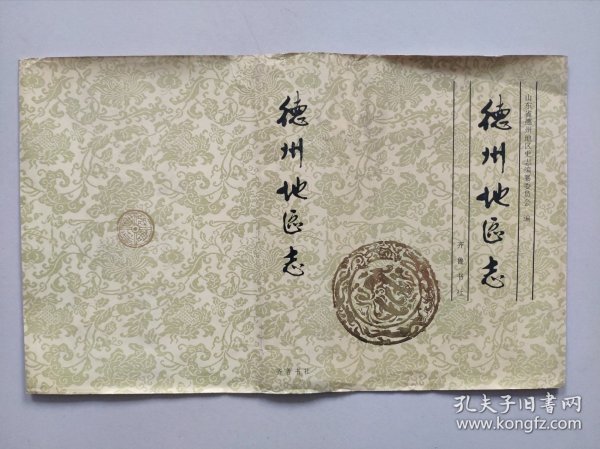 山东省德州地区史志编纂委员会 编
德州地区志
齐鲁书社
德州地区志
齐鲁书社
孔夫子旧书网
www.kongfz.com